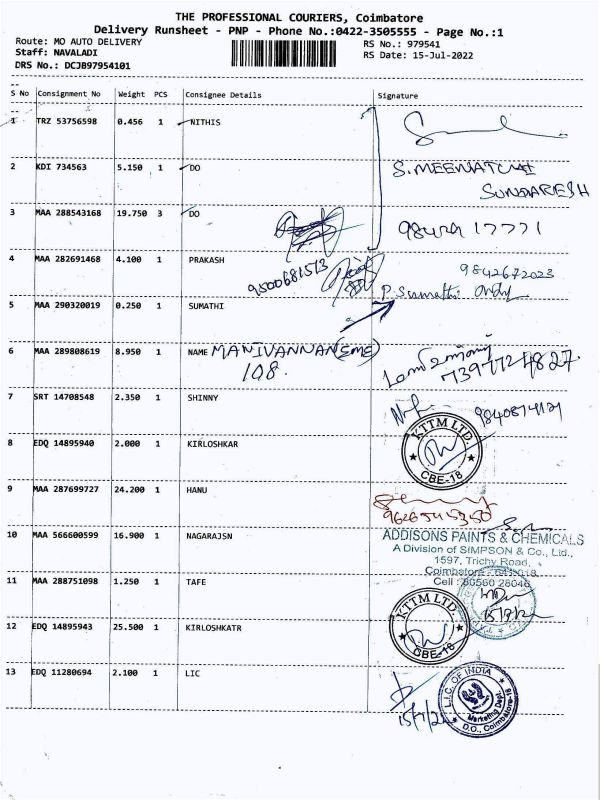 THE PROFESSIONAL COURIERS, Coimbatore
Delivery Runsheet - PNP - Phone No.:0422-3505555 - Page No.:1
Route: MO AUTO DELIVERY
RS No.: 979541
Staff: NAVALADI
RS Date: 15-Jul-2022
DRS No.: DCJB97954101
S No Consignment No Weight PCS Consignee Details Signature
1 TRZ 53756598 0.456 1 NITHIS
2 KDI 734563 5.150 1 DO
S. MEENATCHI
SUNDARESH
3 MAA 288543168 19.750 3 DO
17771
4 MAA 282691468 4.100 1 PRAKASH
9500681513
9842672023
P. Sumathi
5 MAA 290320019 0.250 1 SUMATHI
6 MAA 289808619 8.950 1 NAME MANIVANNAN (SME)
108.
7397724827.
7 SRT 14708548 2.350 1 SHINNY
9840874121
8 EDQ 14895940 2.000 1 KIRLOSHKAR
KTTM LTD.
CBE-18
9 MAA 287699727 24.200 1 HANU
9626545350
10 MAA 566600599 16.900 1 NAGARAJSN
ADDISONS PAINTS & CHEMICALS
A Division of SIMPSON & Co., Ltd.,
1597, Trichy Road,
Coimbatore - 641018
Cell : 80560 28046
11 MAA 288751098 1.250 1 TAFE
12 EDQ 14895943 25.500 1 KIRLOSHKATR
KTTM LTD.
CBE-18
13 EDQ 11280694 2.100 1 LIC
15/7/22
L.I.C. OF INDIA
Marketing Dept.
D.O., Coimbatore-18